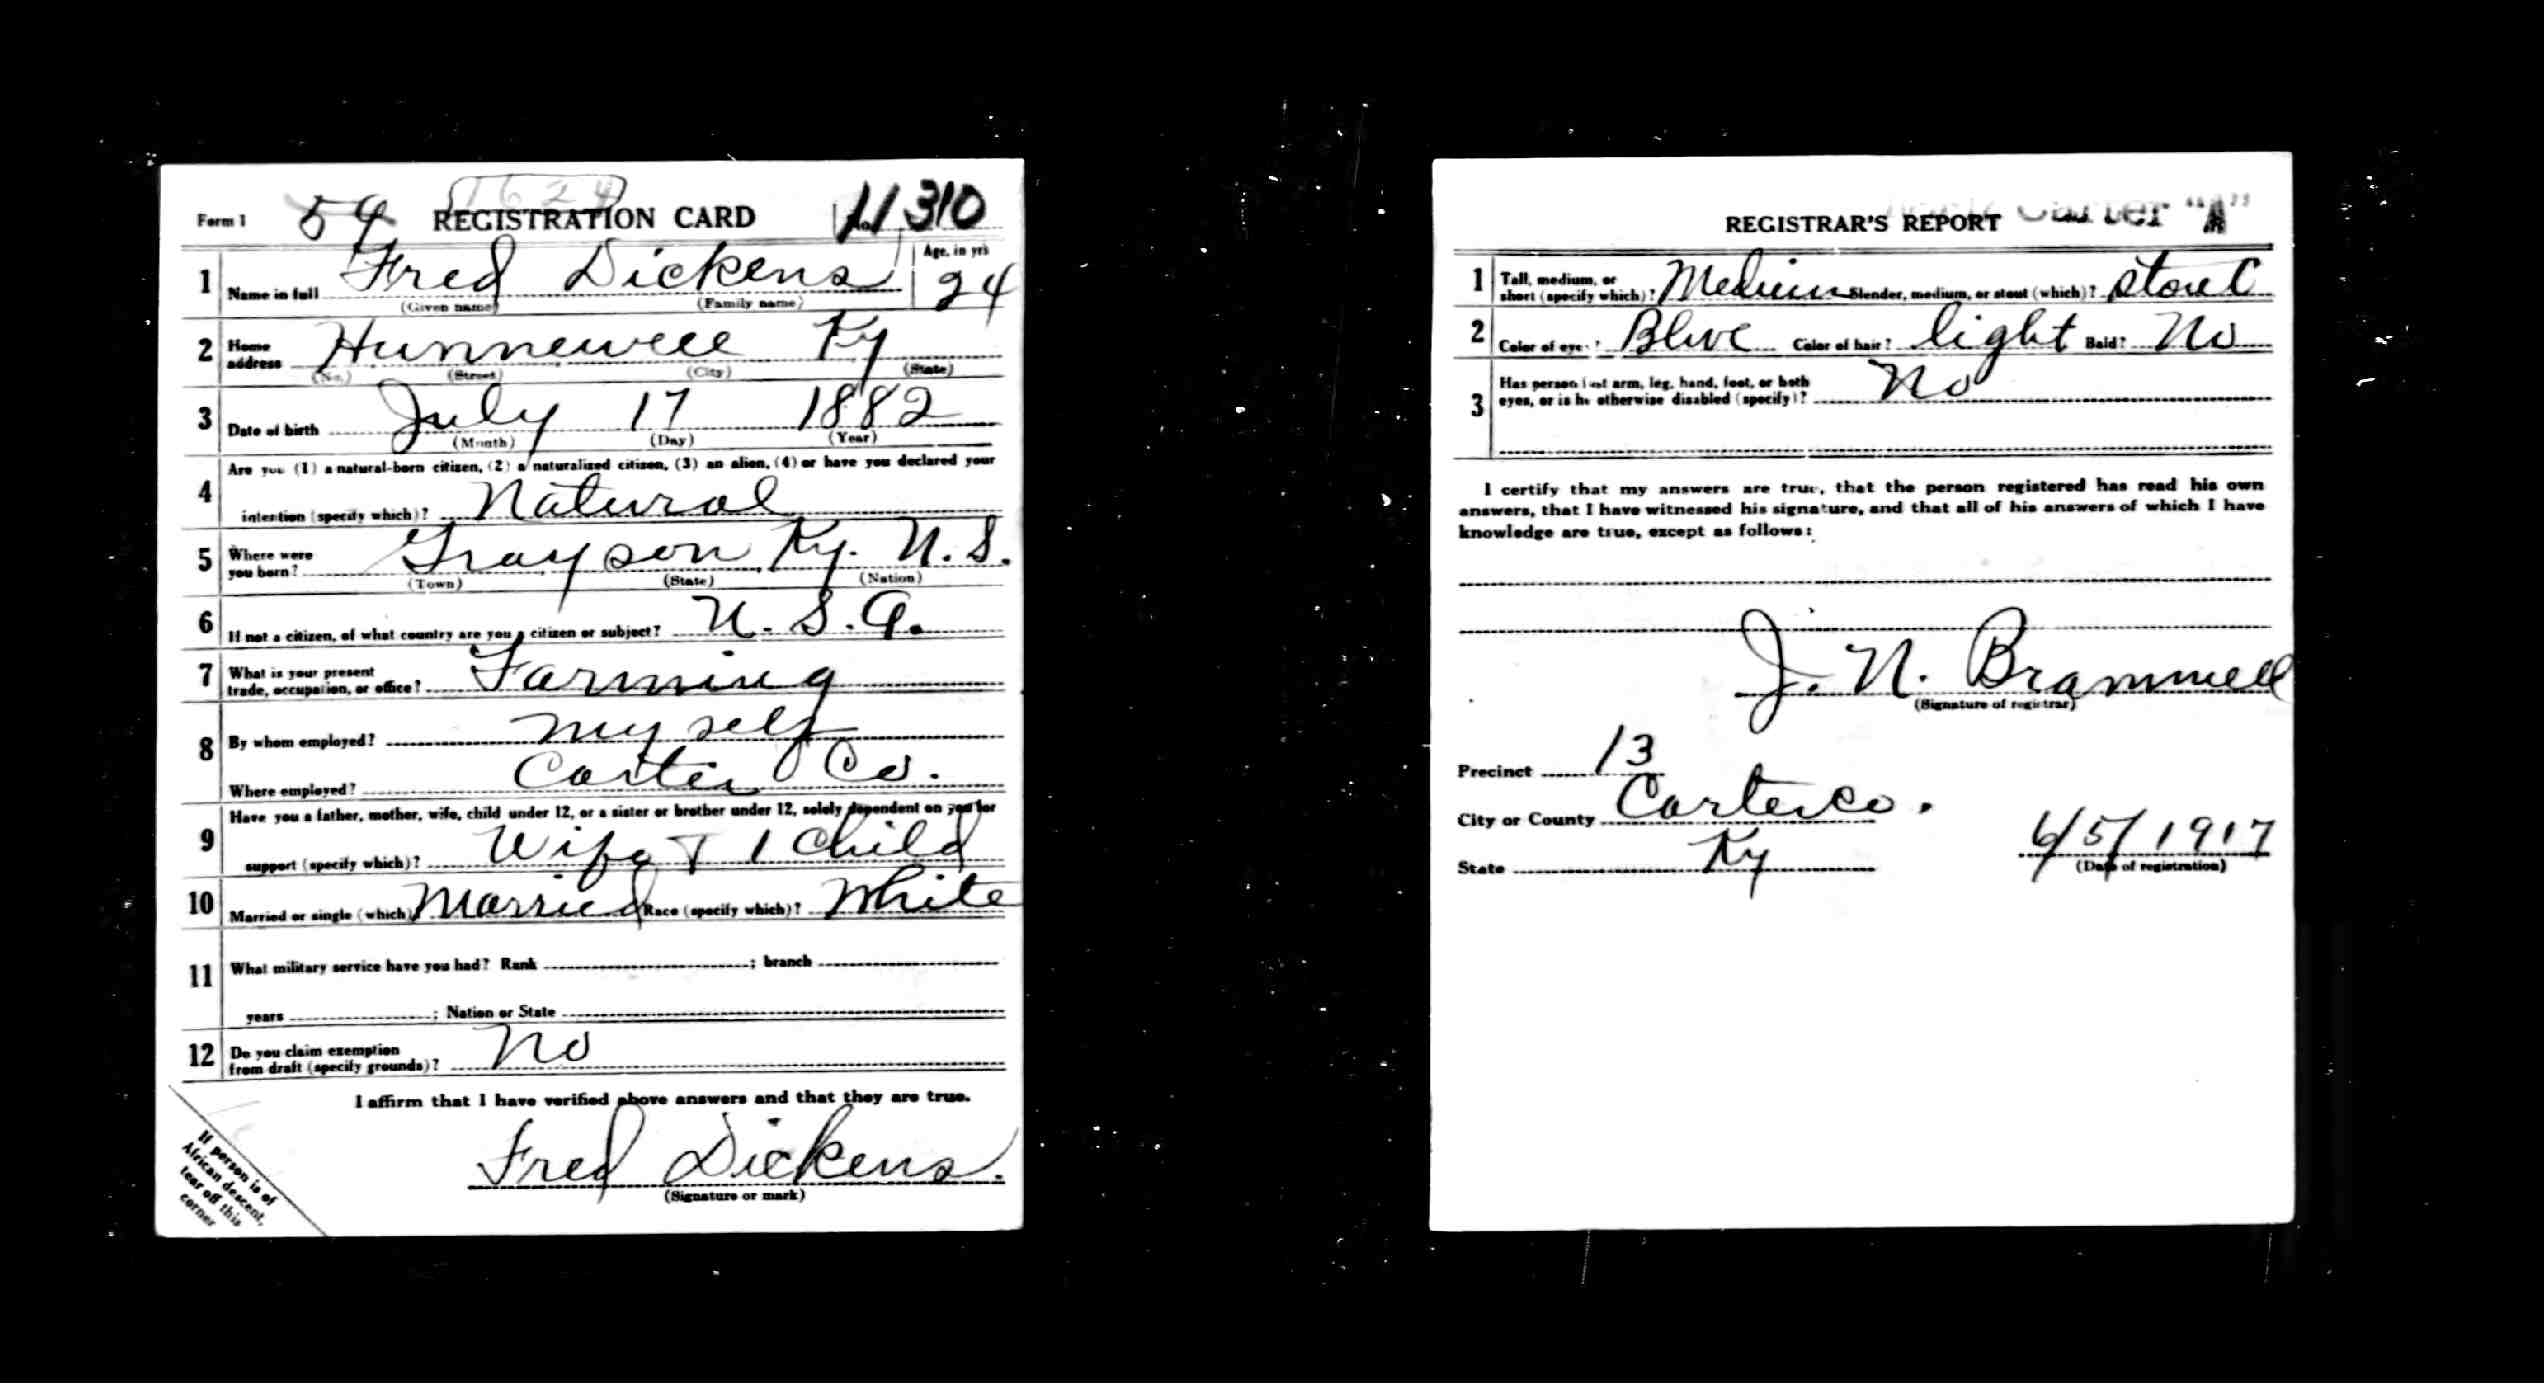 Form 1 59 REGISTRATION CARD No. 11310
1 Name in full Fred Dickens Age, in yrs 24
(Given name) (Family name)
2 Home address Hunnewell Ky
(No.) (Street) (City) (State)
3 Date of birth July 17 1882
(Month) (Day) (Year)
4 Are you (1) a natural-born citizen, (2) a naturalized citizen, (3) an alien, (4) or have you declared your
intention (specify which)? Natural
5 Where were you born? Grayson Ky. U.S.
(Town) (State) (Nation)
6 If not a citizen, of what country are you a citizen or subject? U.S.A.
7 What is your present trade, occupation, or office? Farming
8 By whom employed? myself
Where employed? Carter Co.
9 Have you a father, mother, wife, child under 12, or a sister or brother under 12, solely dependent on you for
support (specify which)? Wife & 1 child
10 Married or single (which)? Married Race (specify which)? White
11 What military service have you had? Rank ; branch
years ; Nation or State
12 Do you claim exemption from draft (specify grounds)? No
I affirm that I have verified above answers and that they are true.
Fred Dickens.
(Signature or mark)
If person is of
African descent,
tear off this
corner
REGISTRAR'S REPORT Carter "A"
1 Tall, medium, or short (specify which)? Medium Slender, medium, or stout (which)? stout
2 Color of eyes? Blue Color of hair? light Bald? No
3 Has person lost arm, leg, hand, foot, or both
eyes, or is he otherwise disabled (specify)? No
I certify that my answers are true, that the person registered has read his own
answers, that I have witnessed his signature, and that all of his answers of which I have
knowledge are true, except as follows:
J. N. Brammell
(Signature of registrar)
Precinct 13
City or County Carter co.
State Ky 6/5/1917
(Date of registration)